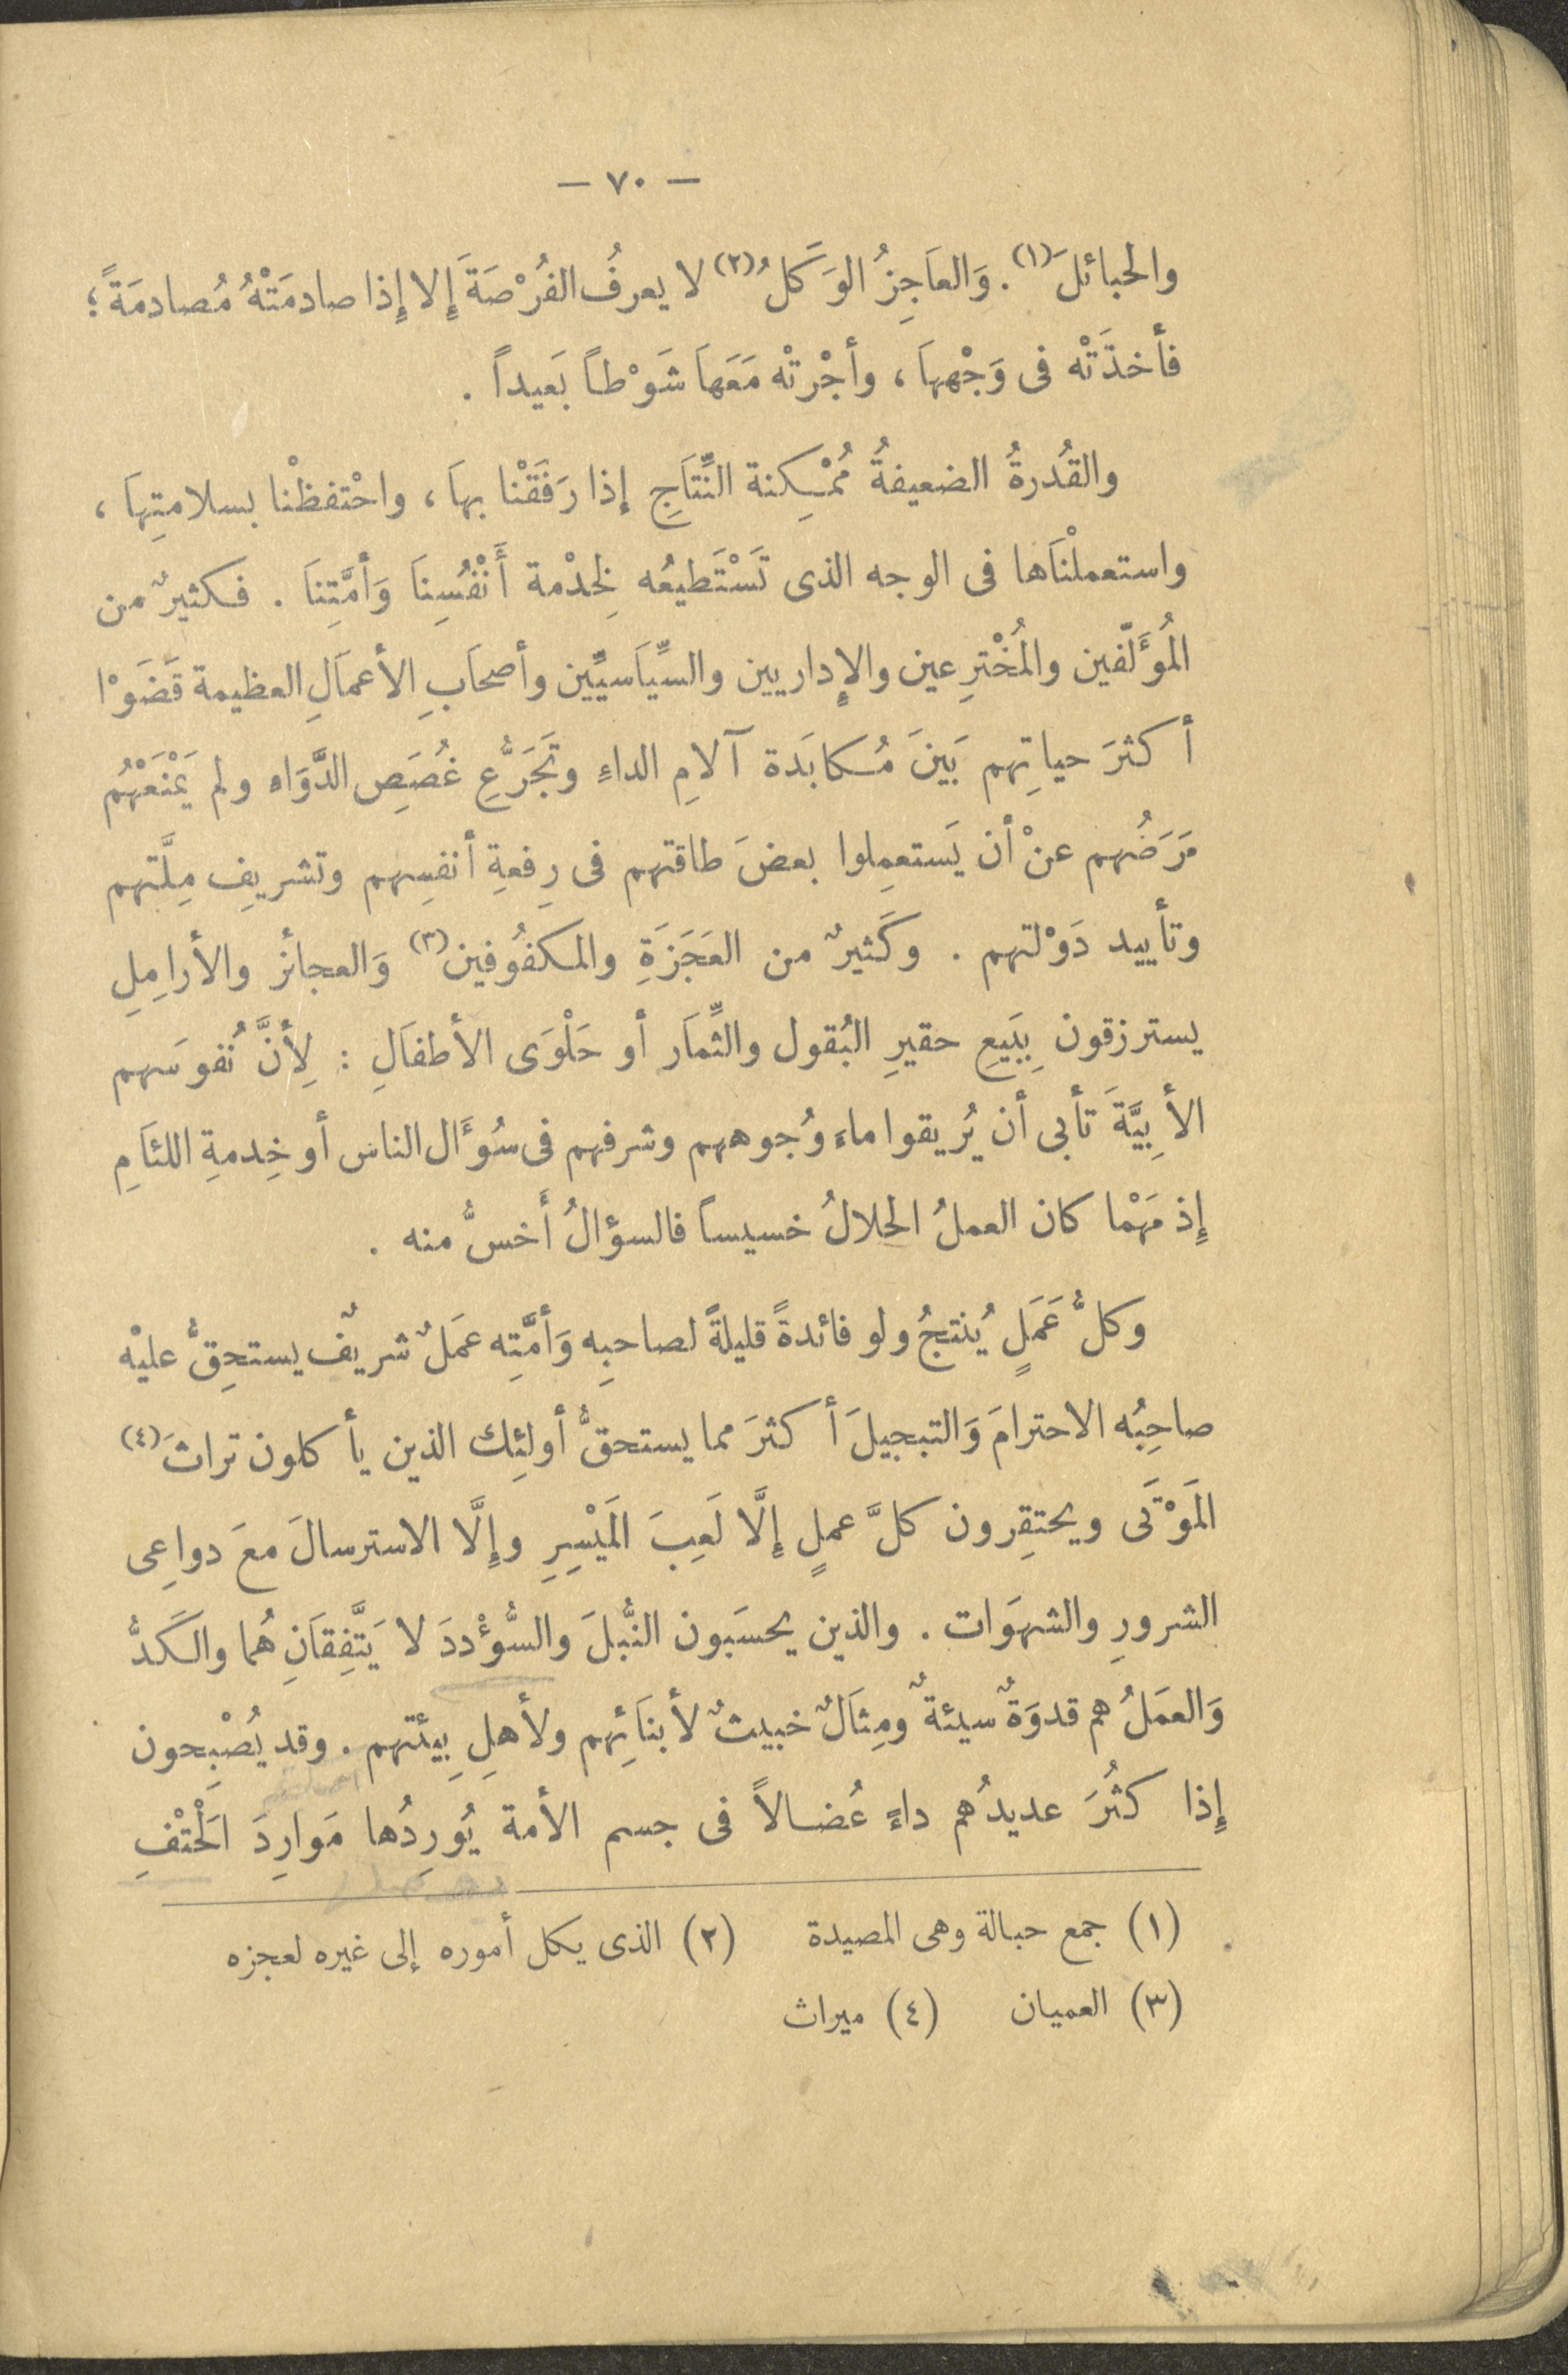 — ٧٠ —
والحبائلَ (١). وَالعاَجِزُ الوَكَلُ (٢) لا يعرفُ الفُرْصَةَ إِلا إِذا صادمَتْهُ مُصادمَةً؛
فأخذَتْه فى وَجْههاَ، وأجْرتْه مَعَهاَ شَوْطاً بَعيداً.
والقُدرةُ الضعيفةُ مُمْكِنة النِّتاَجِ إذا رَفَقْنا بهاَ، واحْتفظْنا بسلامتِهاَ،
واستعملْناَها فى الوجه الذى تَسْتَطيعُه لِخدْمة أَنْفُسِناَ وَأمَّتِناَ. فكثيرٌ من
المُؤَلّفين والمُخْترِعين والإداريين والسِّياَسيِّين وأصحاَبِ الأعماَلِ العظيمة قَضَوْا
أكثرَ حياتِهم بَينَ مُكابَدة آلامِ الداءِ وتَجَرَّعِ غُصَصِ الدَّوَاءِ ولم يَمْنَعْهُم
مَرَضُهم عنْ أن يَستعمِلوا بعضَ طاقتهم فى رِفعةِ أنفسِهم وتشريفِ مِلَّتهم
وتأييد دَوْلتهم. وكَثيرٌ من العَجَزَةِ والمكفُوفين (٣) وَالعجائز والأرامِلِ
يسترزقون بِبَيعِ حقيرِ البُقول والثِّماَر أو حَلْوَى الأطفاَلِ: لِأنَّ نُفوسَهم
الأبِيَّةَ تأبى أن يُريقوا ماءَ وُجوههم وشرفهم فى سُؤَال الناس أو خِدمةِ اللئاَمِ
إِذ مَهْما كان العملُ الحلالُ خسيساً فالسؤالُ أَخسُّ منه.
وكلُّ عَمَلٍ يُنتجُ ولو فائدةً قليلةً لصاحبِه وَأمَّتِه عمَلٌ شريفٌ يستحِقُّ عليْه
صاحِبُه الاحترامَ وَالتبجيلَ أكثرَ مما يستحقُّ أولئِك الذين يأكلون تراثَ (٤)
المَوْتَى ويحتقِرون كلَّ عملٍ إِلَّا لَعِبَ المَيْسِرِ وإِلَّا الاسترسالَ معَ دواعِى
الشرورِ والشهوَات. والذين يحسَبون النُّبلَ والسُّؤْددَ لا يَتَّفِقاَنِ هُما والكَدُّ
وَالعمَلُ هم قدوَةٌ سيئةٌ ومِثاَلٌ خبيثٌ لأبناَئِهم ولأهلِ بِيئتهم. وقد يُصْبِحون
إِذا كثُرَ عديدُهم داءً عُضالاً فى جسم الأمة يُورِدُها مَوارِدَ الحَتْفِ
(١) جمع حبالة وهى المصيدة (٢) الذى يكل أموره إلى غيره لعجزه
(٣) العميان (٤) ميراث